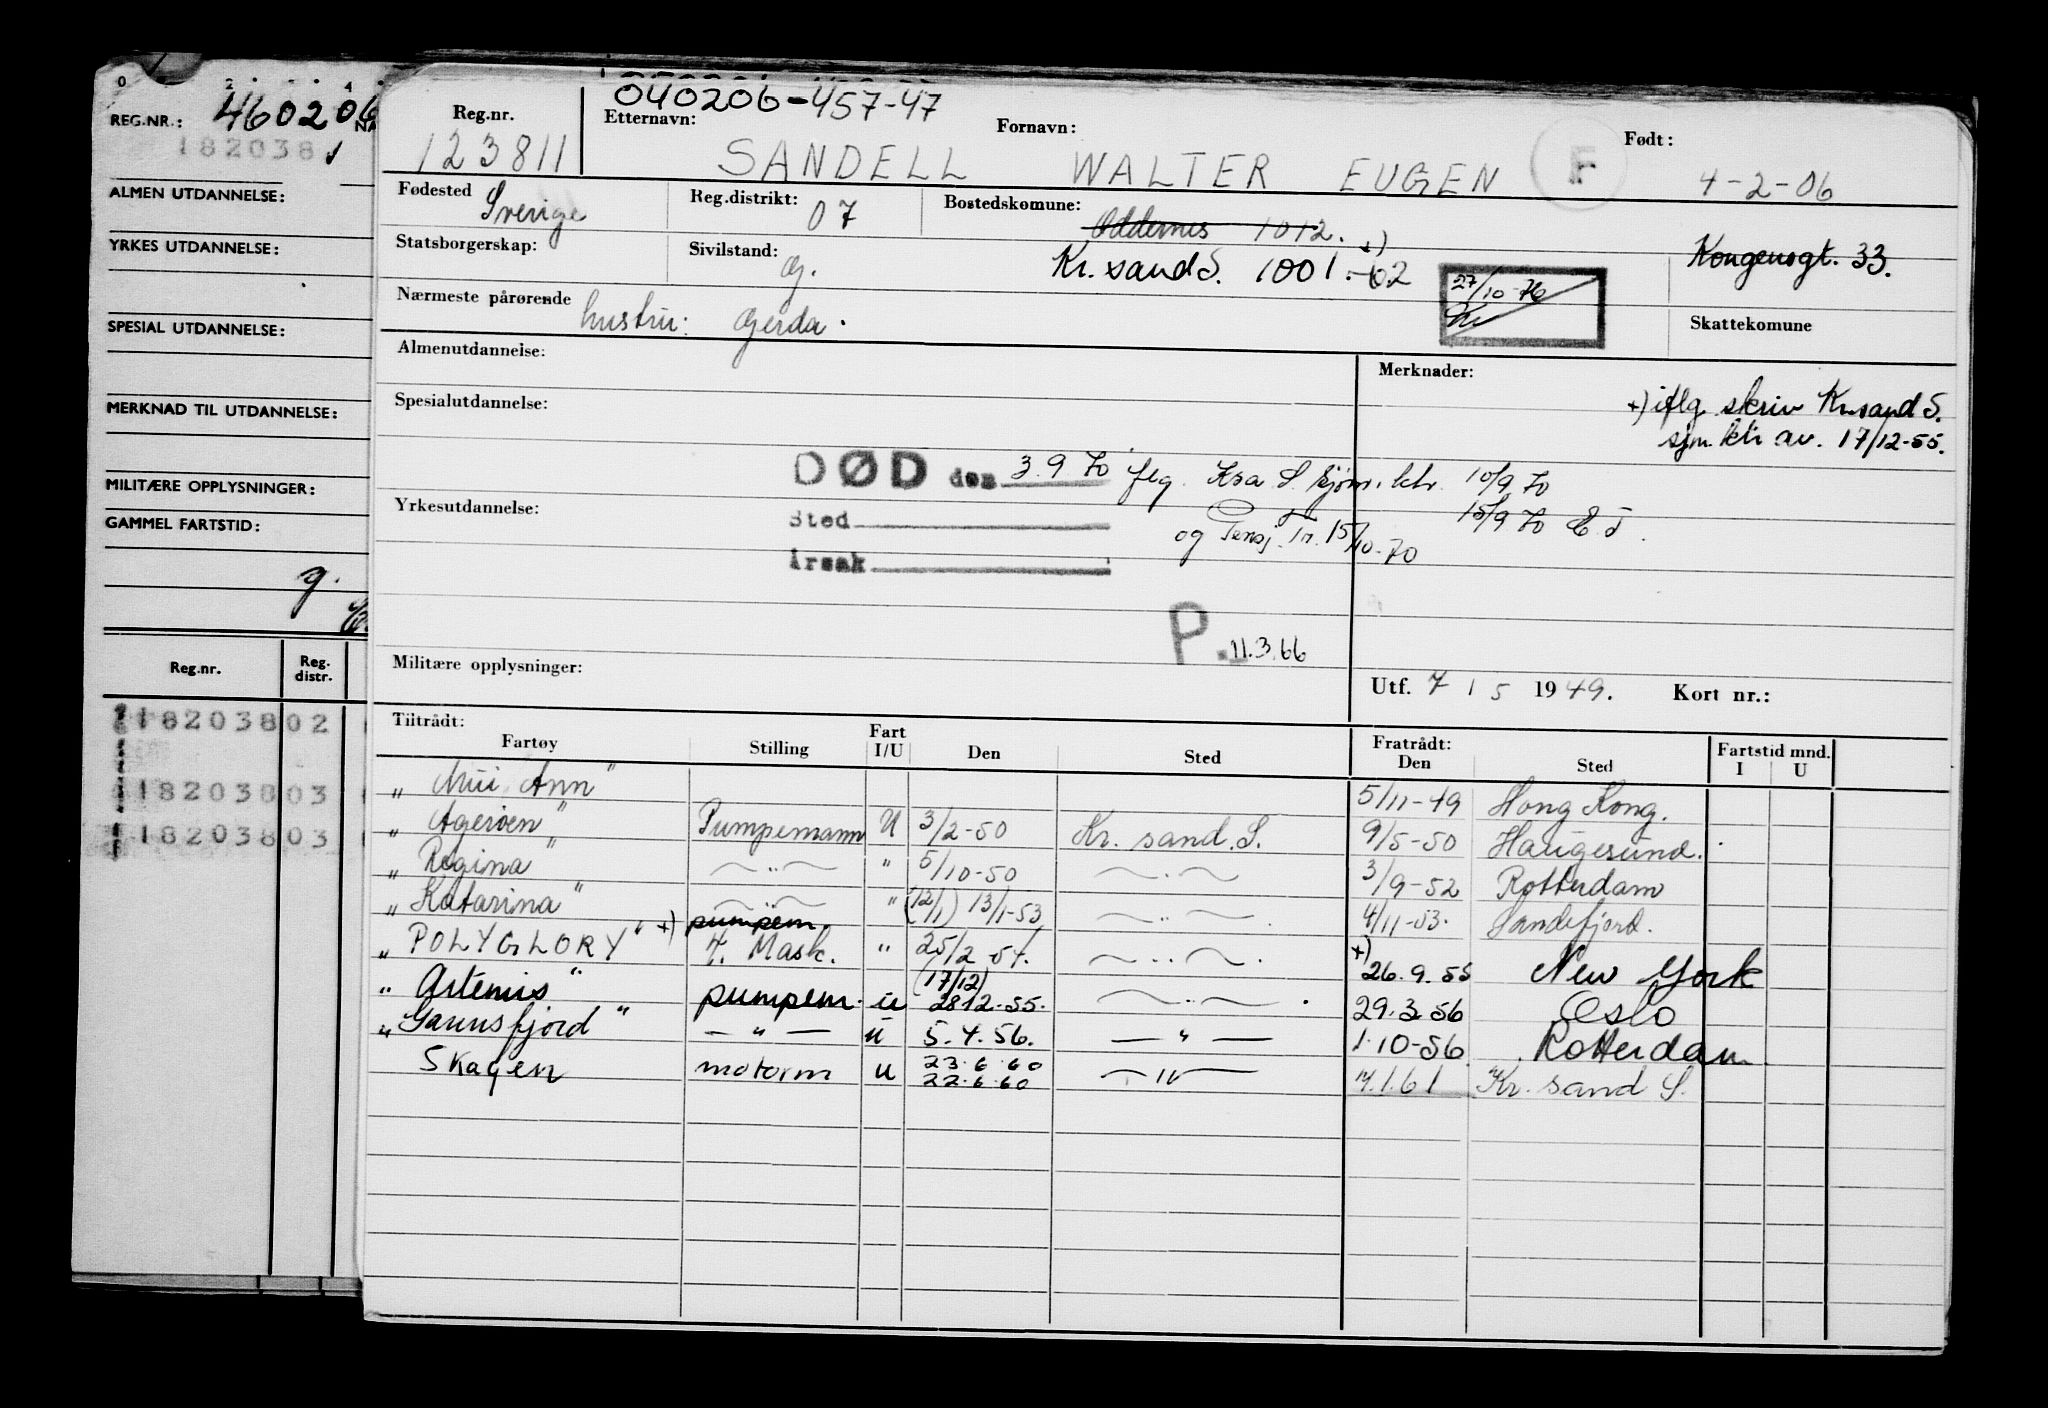 REG.NR.: 460206
182038
ALMEN UTDANNELSE:
YRKES UTDANNELSE:
SPESIAL UTDANNELSE:
MERKNAD TIL UTDANNELSE:
MILITÆRE OPPLYSNINGER:
GAMMEL FARTSTID:
g.
Reg.nr. Reg. distr.
182038 02
182038 03
182038 03
040206-457-47
Reg.nr. Etternavn: Fornavn: Født:
123811 SANDELL WALTER EUGEN F 4-2-06
Fødested Sverige Reg.distrikt: 07 Bostedskomune: Oddernes 1012.
Statsborgerskap: Sivilstand: g. Kr.sand S. 1001.-02 +) Kongensgt. 33.
27/10-76
Nærmeste pårørende hustru: Gerda. Skattekomune
Almenutdannelse: Merknader:
+) iflg. skriv Kr.sand S.
sjm. ktr av. 17/12-55.
Spesialutdannelse:
DØD den 3.9.70 flg. Kra S. sjøm. ktr. 10/9 70
Yrkesutdannelse: Sted 15/9 70 E.T.
og Pensj. Tr. 15/10-70
Årsak
P. 11.3.66
Militære opplysninger:
Utf. 7 / 5 1949. Kort nr.:
Tiltrådt: Fratrådt: Fartstid mnd.
Fartøy Stilling Fart I/U Den Sted Den Sted I U
" Ann" 5/11-49 Hong Kong.
" Agerøen" Pumpemann U 3/2-50 Kr. sand. S. 9/5-50 Haugesund.
" Regina" — " — " 5/10-50 — " — 3/9-52 Rotterdam
" Katarina" — " — " (12/1) 13/1-53 — " — 4/11-53. Sandefjord.
+) pumpem.
" POLYGLORY" 4. Mask. " 25/2 54. — " — +) 26.9.55 New York
" Artemis" pumpem. u (17/12) 28.12-55. — " — 29.3.56 Oslo
" Gaunsfjord" — " — u 5.4.56. — " — 1-10-56 Rotterdam
Skagen motorm u 23.6.60 — " — 14.1.61 Kr. sand S.
22.6.60